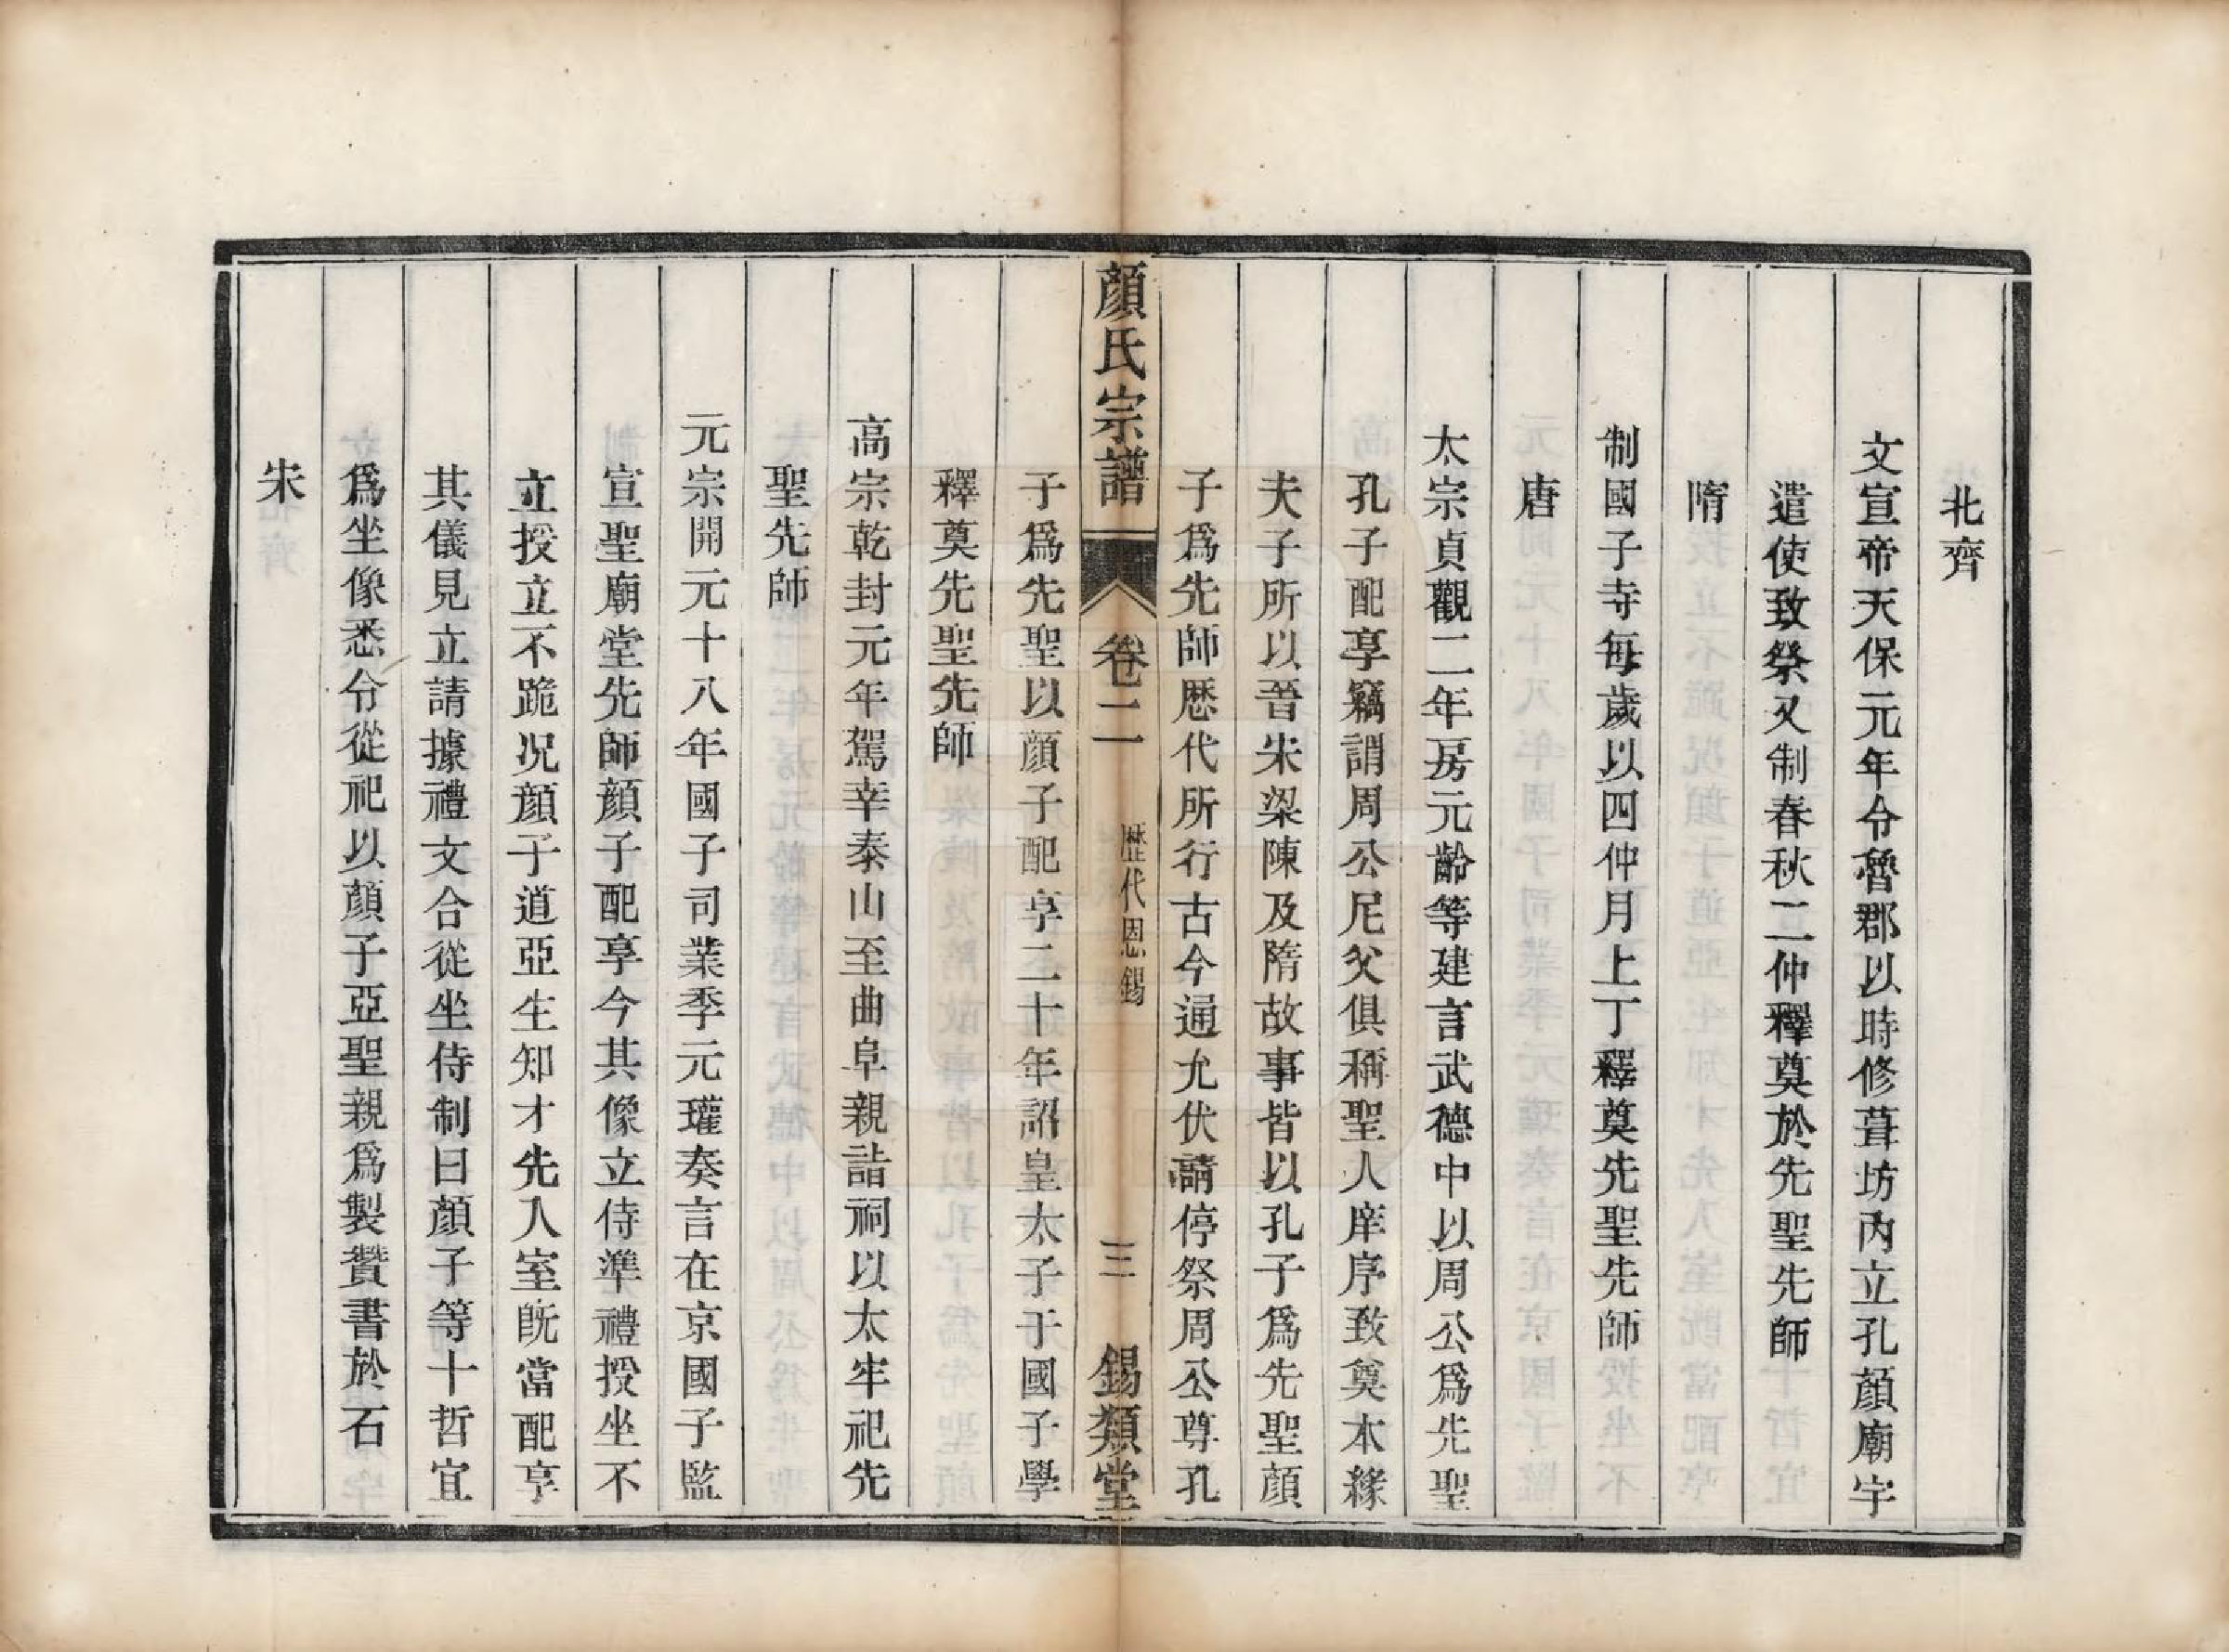 北齊
文宣帝天保元年令魯郡以時修葺坊內立孔顏廟宇
遣使致祭又制春秋二仲釋奠於先聖先師
隋
制國子寺每歲以四仲月上丁釋奠先聖先師
唐
太宗貞觀二年房元齡等建言武德中以周公爲先聖
孔子配享竊謂周公尼父俱稱聖人庠序致奠本緣
夫子所以晉宋梁陳及隋故事皆以孔子爲先聖顏
子爲先師歷代所行古今通允伏請停祭周公尊孔
顏氏宗譜
卷二
歷代恩錫
三
錫類堂
子爲先聖以顏子配享二十年詔皇太子于國子學
釋奠先聖先師
高宗乾封元年駕幸泰山至曲阜親詣祠以太牢祀先
聖先師
元宗開元十八年國子司業季元瓘奏言在京國子監
宣聖廟堂先師顏子配享今其像立侍準禮授坐不
立授立不跪况顏子道亞生知才先入室旣當配享
其儀見立請據禮文合從坐侍制曰顏子等十哲宜
爲坐像悉令從祀以顏子亞聖親爲製贊書於石
宋